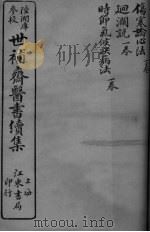 傷寒論心法 一卷
迴瀾說 一卷
時節氣候決病法 一卷
陸潤庠
參校
世補齋醫書續集
上海
江東書局
印行